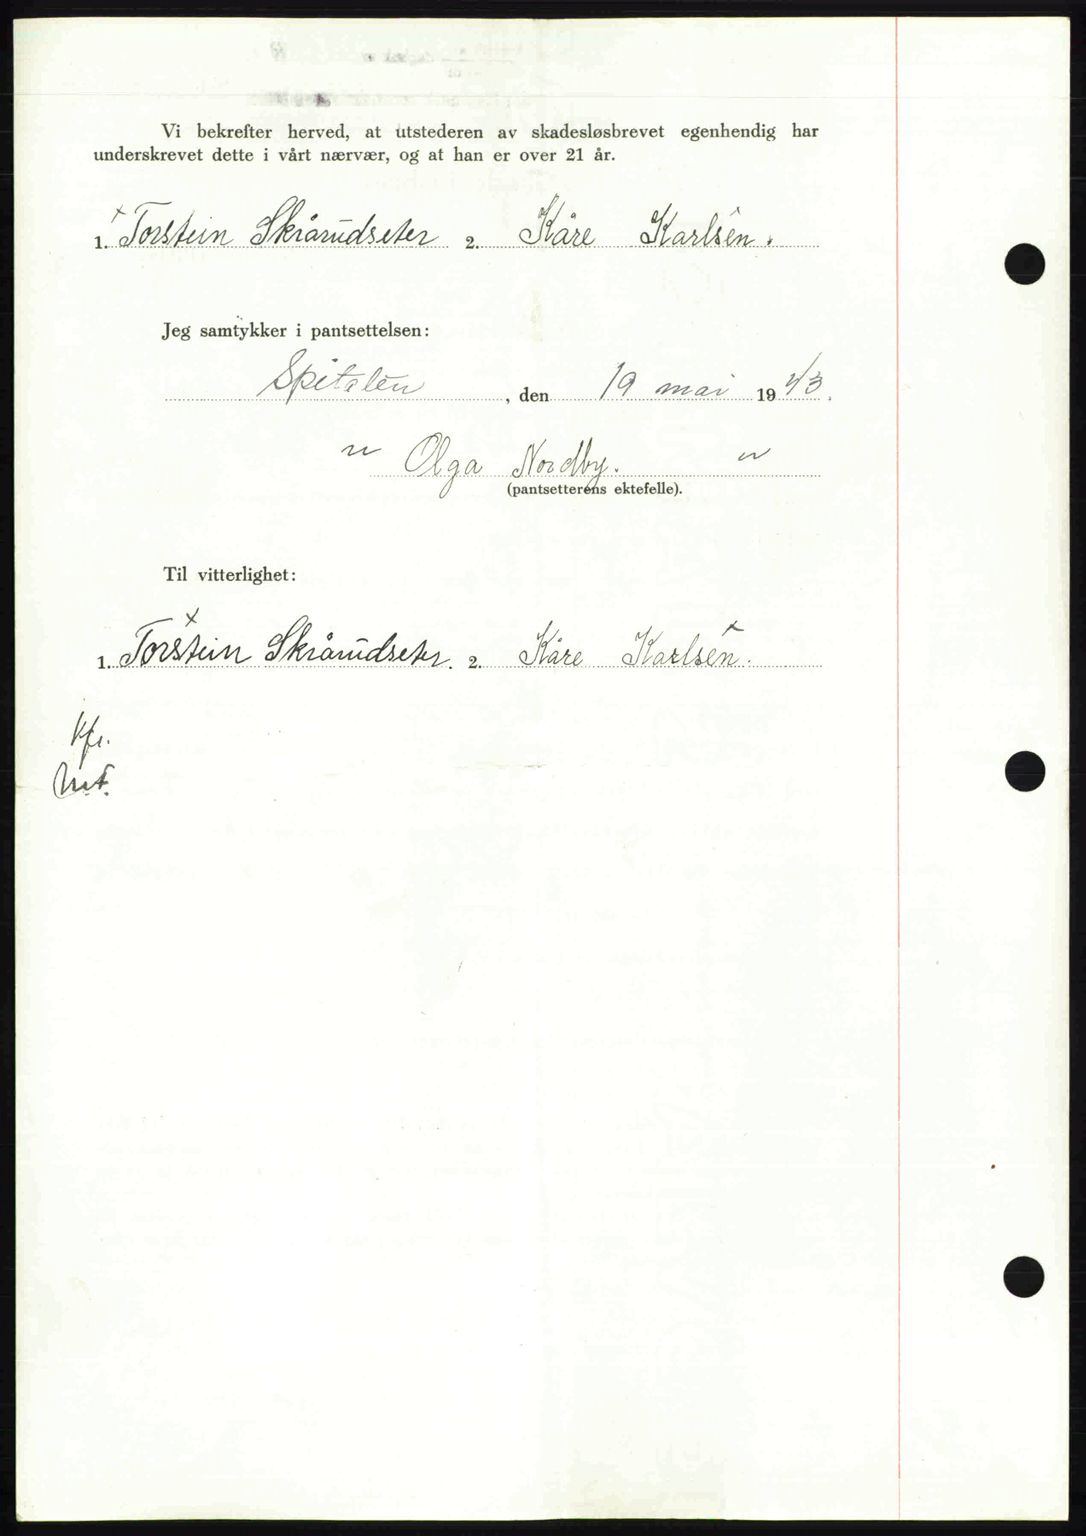 Vi bekrefter herved, at utstederen av skadesløsbrevet egenhendig har
underskrevet dette i vårt nærvær, og at han er over 21 år.
1. Torstein Skårudseter 2. Kåre Karlsen.
Jeg samtykker i pantsettelsen:
Spitalen, den 19 mai 1943.
Olga Nordby.
(pantsetterens ektefelle).
Til vitterlighet:
1. Torstein Skårudseter. 2. Kåre Karlsen.